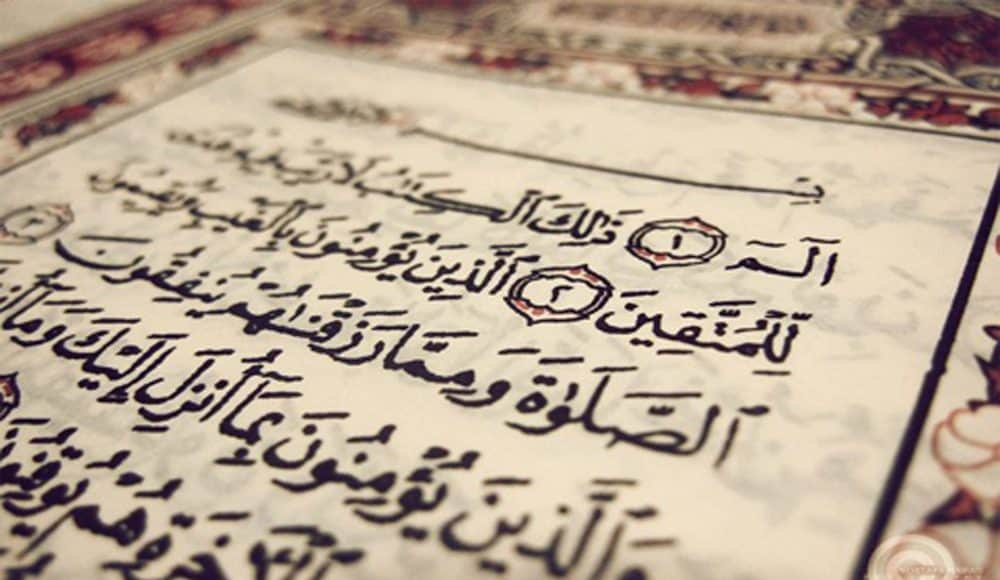 الٓمٓ ١ ذَٰلِكَ ٱلْكِتَٰبُ لَا رَيْبَ فِيهِ
لِّلْمُتَّقِينَ ٢ ٱلَّذِينَ يُؤْمِنُونَ بِٱلْغَيْبِ وَيُقِيمُونَ
ٱلصَّلَوٰةَ وَمِمَّا رَزَقْنَٰهُمْ يُنفِقُونَ ٣
وَٱلَّذِينَ يُؤْمِنُونَ بِمَآ أُنزِلَ إِلَيْكَ وَمَآ
هُمْ